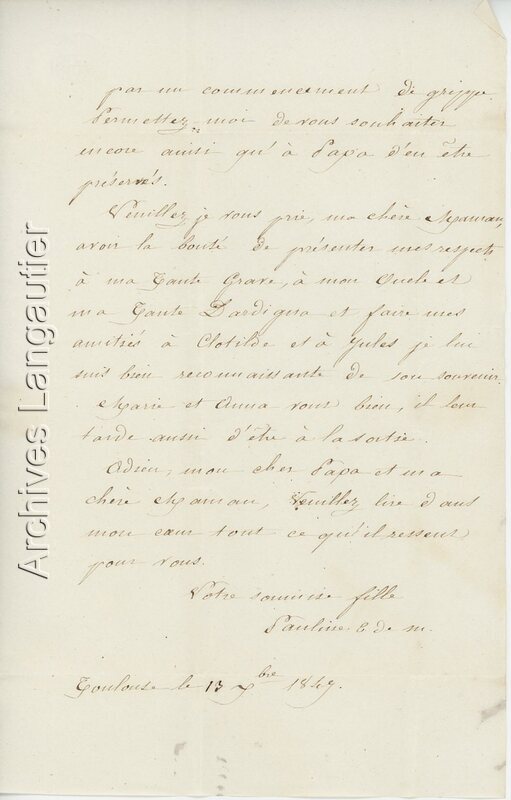 par un commencement de grippe.
Permettez-moi de vous souhaiter
encore ainsi qu'à Papa d'en être
préservés.
Veuillez je vous prie, ma chère Maman,
avoir la bonté de présenter mes respects
à ma Tante Grave, à mon Oncle et
ma Tante Dardigna et faire mes
amitiés à Clotilde et à Jules je lui
suis bien reconnaissante de son souvenir.
Marie et Anna vont bien, il leur
tarde aussi d'être à la sortie.
Adieu, mon cher Papa et ma
chère Maman, Veuillez lire dans
mon cœur tout ce qu'il ressent
pour vous.
Votre soumise fille
Pauline de m.
Toulouse le 13 bre
Archives Langautier